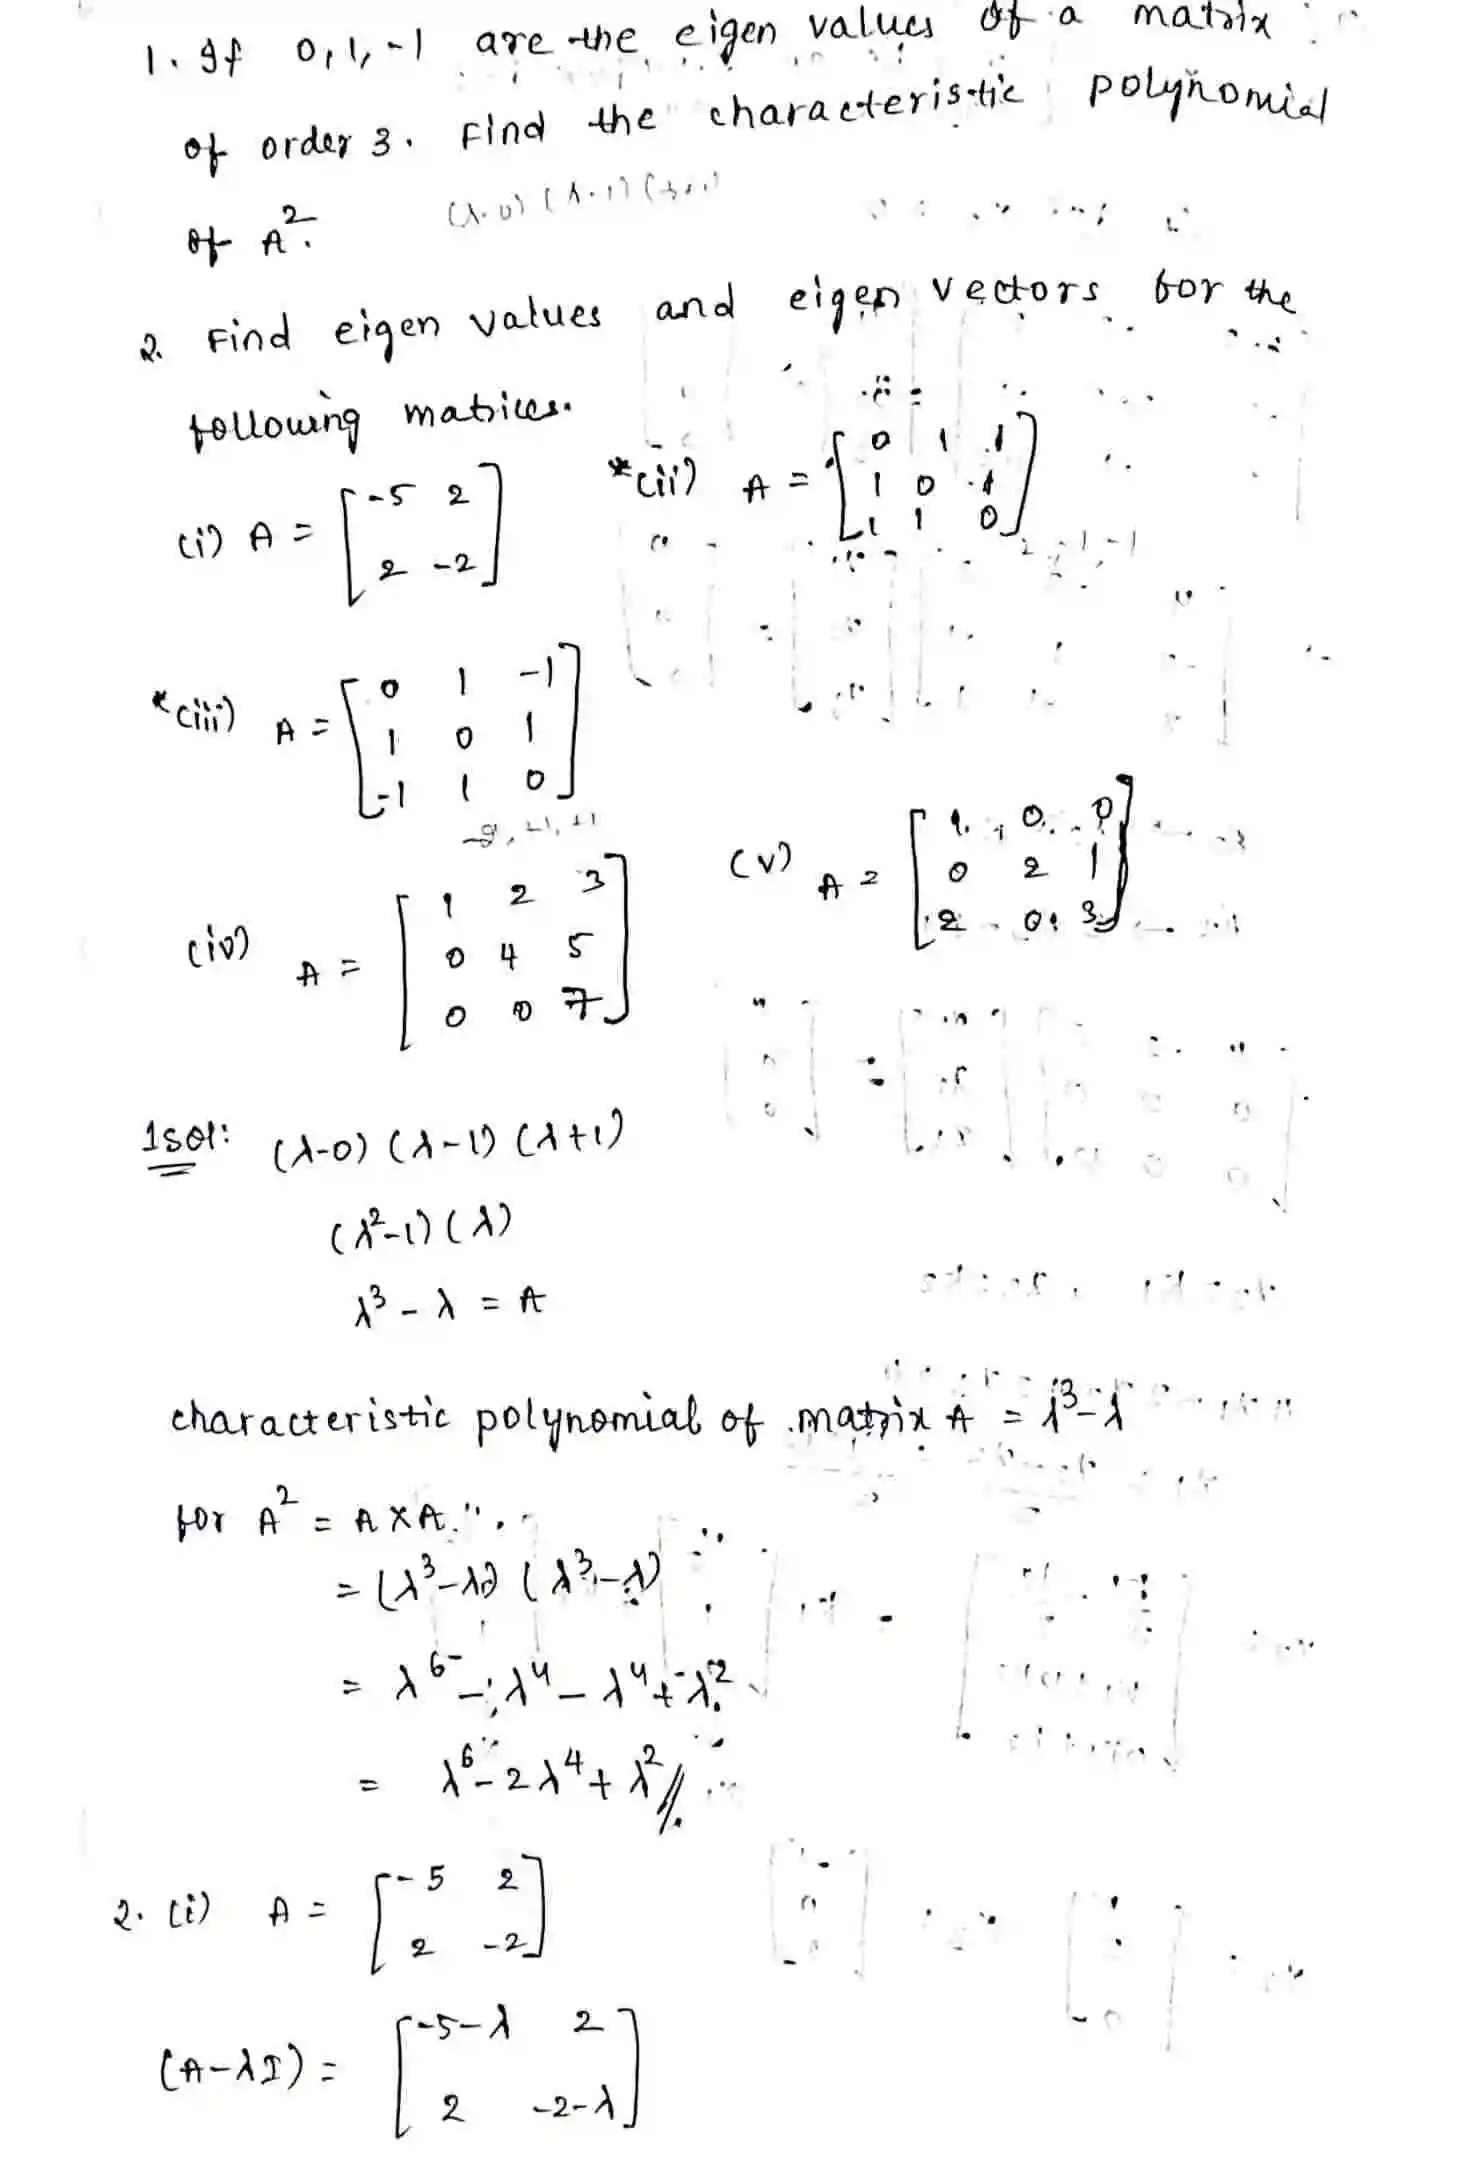 1. If 0, 1, -1 are the eigen values of a matrix
of order 3. Find the characteristic polynomial
of A².
(λ-0) (λ-1) (λ+1)
2. Find eigen values and eigen vectors for the
following matrices.
(i) A = [-5 2
2 -2]
*(ii) A = [0 1 1
1 0 1
1 1 0]
2, -1, -1
*(iii) A = [0 1 -1
1 0 1
-1 1 0]
-2, +1, +1
(iv) A = [1 2 3
0 4 5
0 0 7]
(v) A = [1 0 0
0 2 1
2 0 3]
1sol: (λ-0) (λ-1) (λ+1)
(λ²-1) (λ)
λ³ - λ = A
characteristic polynomial of matrix A = λ³-λ
for A² = A X A
= (λ³-λ) (λ³-λ)
= λ⁶ - λ⁴ - λ⁴ + λ²
= λ⁶ - 2λ⁴ + λ²//.
2. (i) A = [-5 2
2 -2]
(A-λI) = [-5-λ 2
2 -2-λ]